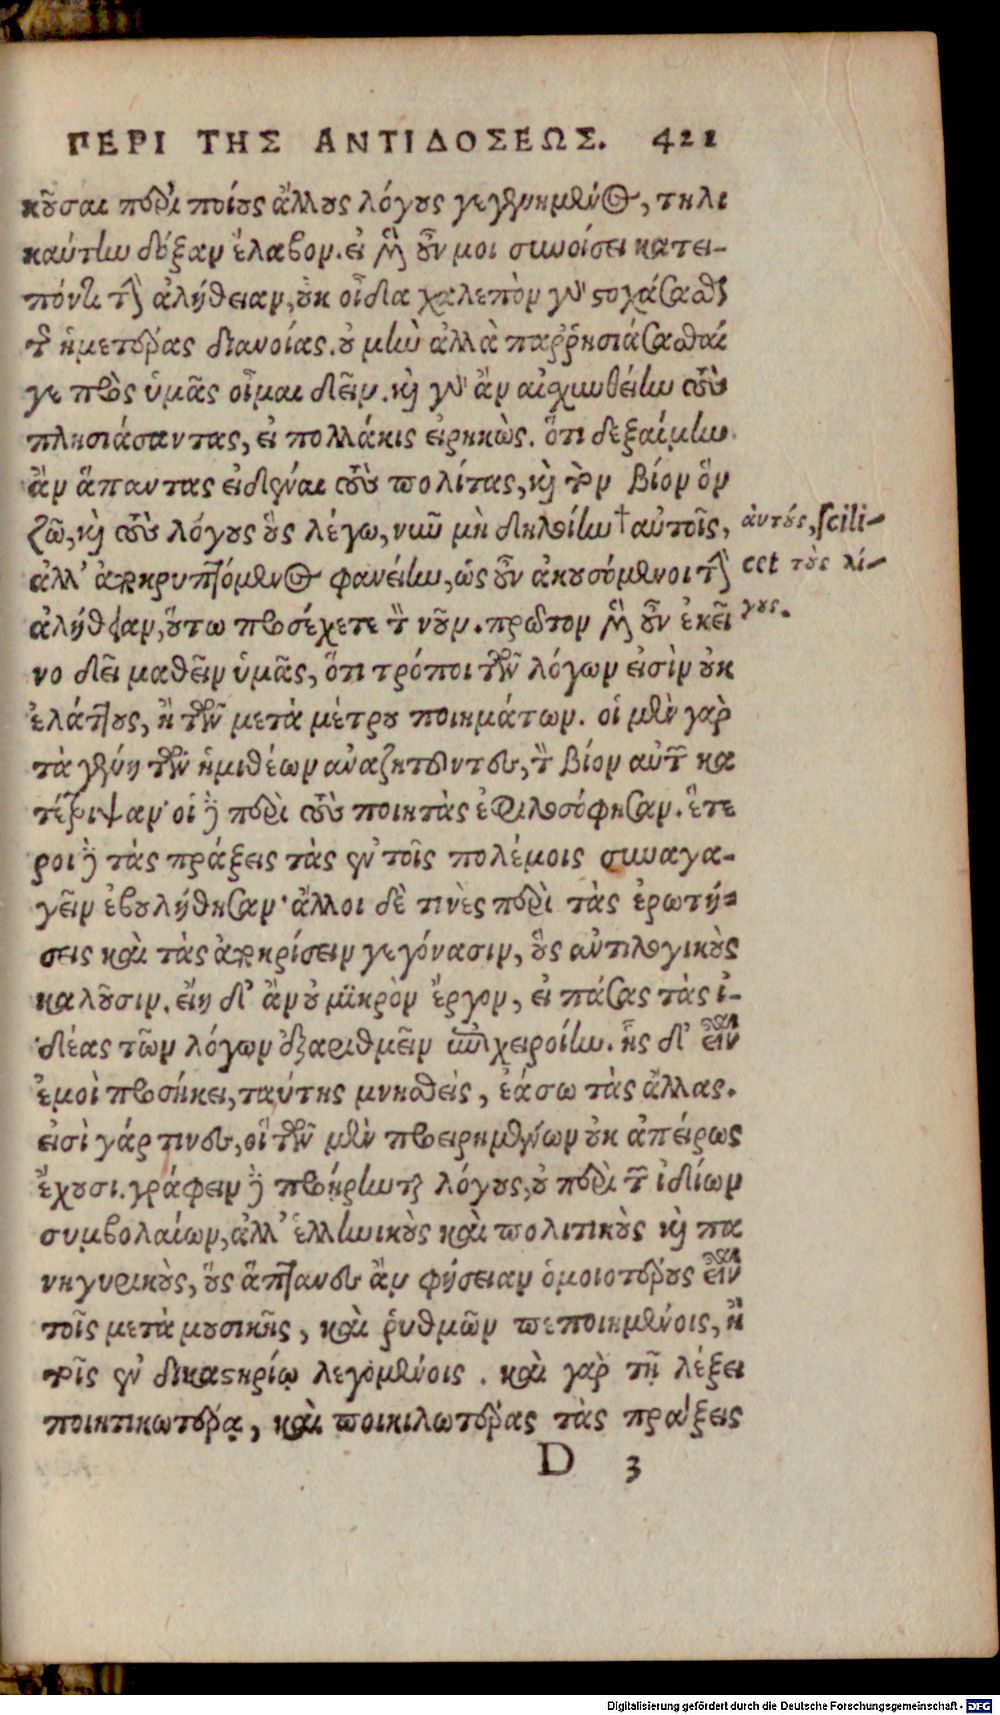 ΠΕΡΙ ΤΗΣ ΑΝΤΙΔΟΣΕΩΣ. 421
κοῦσαι περὶ ποίους ἄλλους λόγους γεγενημένος, τηλι
καύτην δόξαν ἔλαβον. εἰ μὲν οὖν μοι συνοίσει κατει-
πόντι τὴν ἀλήθειαν, οὐκ οἶδα χαλεπὸν γὰρ στοχάσασθαι
τῆς ἡμετέρας διανοίας. οὐ μὴν ἀλλὰ παῤῥησιάσασθαί
γε πρὸς ὑμᾶς οἶμαι δεῖν. καὶ γὰρ ἂν αἰσχυνθείην τοὺς
πλησιάσαντας, εἰ πολλάκις εἰρηκὼς. ὅτι δεξαίμην
ἂν ἅπαντας εἰδέναι τοὺς πολίτας, καὶ τὸν βίον ὃν
ζῶ, καὶ τοὺς λόγους οὓς λέγω, νῦν μὴ δηλοίην † αὐτοῖς,
ἀλλ' ἀποκρυπτόμενος φανείην, ὡς οὖν ἀκουσόμενοι τὴν
ἀλήθειαν, οὕτω προσέχετε τὸν νοῦν. πρῶτον μὲν οὖν ἐκεῖ
νο δεῖ μαθεῖν ὑμᾶς, ὅτι τρόποι τῶν λόγων εἰσὶν οὐκ
ἐλάττους, ἢ τῶν μετὰ μέτρου ποιημάτων. οἱ μὲν γὰρ
τὰ γένη τῶν ἡμιθέων ἀναζητοῦντες, τὸν βίον αὐτῶν κα
τέτριψαν· οἱ δὲ περὶ τοὺς ποιητὰς ἐφιλοσόφησαν. ἕτε
ροι δὲ τὰς πράξεις τὰς ἐν τοῖς πολέμοις συναγα-
γεῖν ἐβουλήθησαν· ἄλλοι δὲ τινὲς περὶ τὰς ἐρωτή-
σεις καὶ τὰς ἀποκρίσειν γεγόνασιν, οὓς ἀντιλογικοὺς
καλοῦσιν. εἴη δ' ἂν οὐ μικρὸν ἔργον, εἰ πάσας τὰς ἰ-
δέας τῶν λόγων ἐξαριθμεῖν ἐπιχειροίην. ἧς δ' εἶναι
ἐμοὶ προσήκει, ταύτης μνησθεὶς, ἐάσω τὰς ἄλλας.
εἰσὶ γάρ τινες, οἳ τῶν μὲν προειρημένων οὐκ ἀπείρως
ἔχουσι. γράφειν δὲ προῄρηνται λόγους, οὐ περὶ τῶν ἰδίων
συμβολαίων, ἀλλ' ἑλληνικοὺς καὶ πολιτικοὺς καὶ πα
νηγυρικοὺς, οὓς ἅπαντες ἂν φήσειαν ὁμοιοτέρους εἶναι
τοῖς μετὰ μουσικῆς, καὶ ῥυθμῶν πεποιημένοις, ἢ
τοῖς ἐν δικαστηρίῳ λεγομένοις. καὶ γὰρ τῇ λέξει
ποιητικωτέρᾳ, καὶ ποικιλωτέρας τὰς πράξεις
D 3
ἀντούς, scili-
cet τοὺς λό-
γους.
Digitalisierung gefördert durch die Deutsche Forschungsgemeinschaft - DFG